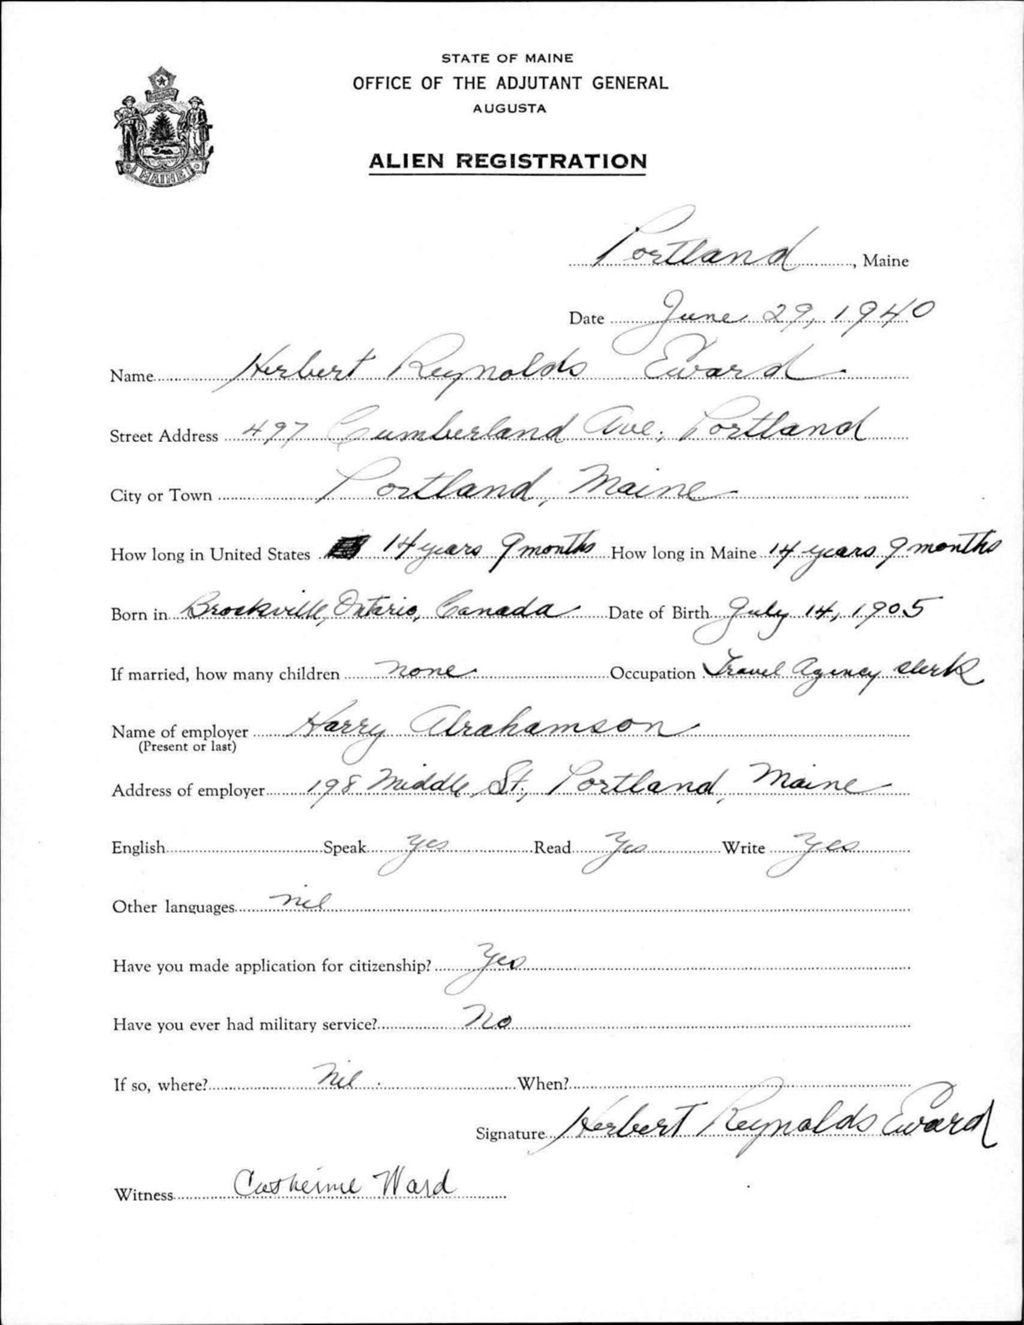 STATE OF MAINE
OFFICE OF THE ADJUTANT GENERAL
AUGUSTA
ALIEN REGISTRATION
MAINE
Portland, Maine
Date June 29, 1940
Name Herbert Reynolds Eward
Street Address 497 Cumberland Ave., Portland
City or Town Portland, Maine
How long in United States 14 years 9 months How long in Maine 14 years 9 months
Born in Brockville, Ontario, Canada Date of Birth July 14, 1905
If married, how many children none Occupation Travel Agency clerk
Name of employer Harry Abrahamson
(Present or last)
Address of employer 198 Middle St., Portland, Maine
English Speak Yes Read Yes Write Yes
Other languages nil
Have you made application for citizenship? Yes
Have you ever had military service? No
If so, where? Nil. When?
Signature Herbert Reynolds Eward
Witness Catherine Ward